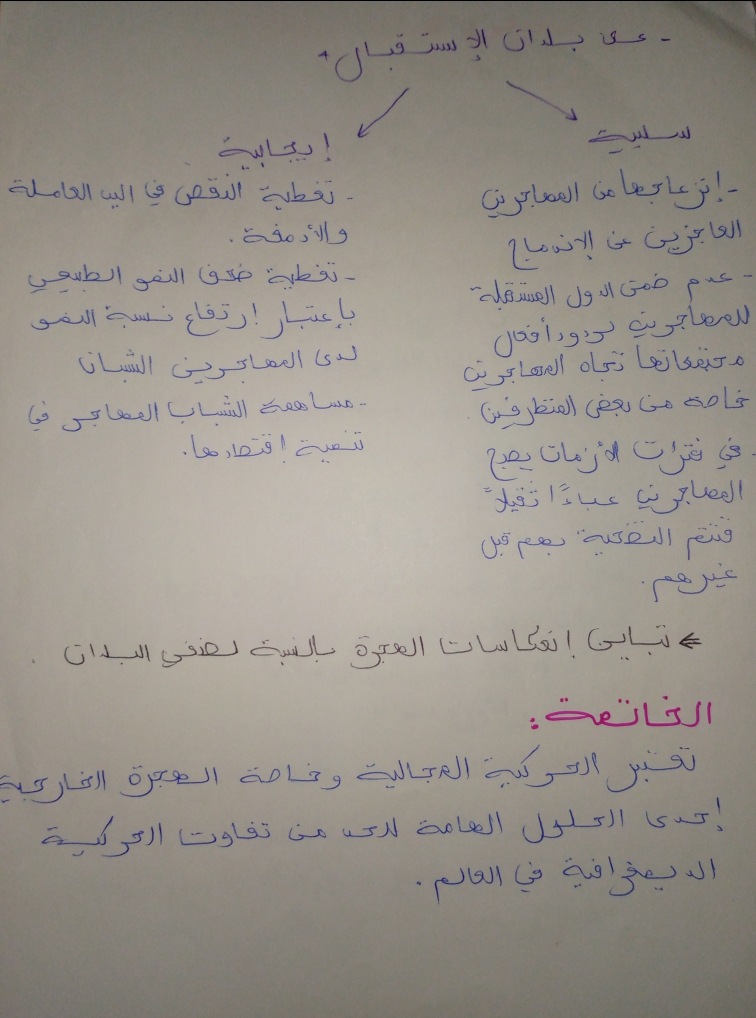 - على بلدان الإستقبال +
سلبية
- إنزعاجها من المهاجرين
العاجزين عن الإندماج
- عدم ضمن الدول المستقبلة
للمهاجرين ردود أفعال
مجتمعاتها تجاه المهاجرين
خاصة من بعض المتطرفين.
- في فترات الأزمات يصبح
المهاجرين عباءًا ثقيلاً
فتتم التضحية بهم قبل
غيرهم.
إيجابية
- تغطية النقص في اليد العاملة
والأدمغة.
- تغطية ضعف النمو الطبيعي
بإعتبار إرتفاع نسبة النمو
لدى المهاجرين الشبان
- مساهمة الشباب المهاجر في
تنمية إقتصادها.
← تباين إنعكاسات الهجرة بالنسبة لضفي البلدان .
الخاتمة:
تعتبر الحركية المجالية وخاصة الهجرة الخارجية
إحدى الحلول الهامة للحد من تفاوت الحركية
الديمغرافية في العالم.